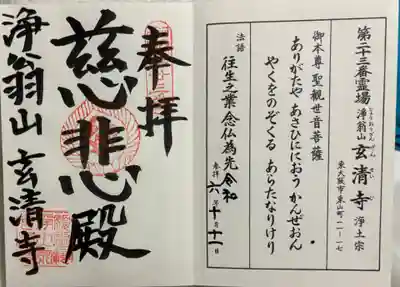 第二十三番霊場 浄翁山 玄清寺 浄土宗
げん せい じ
東大阪市東山町二ー一七
御本尊 聖観世音菩薩
ありがたや あさひににおう かんぜおん
やくをのぞくる あらたなりけり
法語 往生之業 念仏為先
参拝 令和六年十月十二日
奉拝
慈悲殿
浄翁山 玄清寺